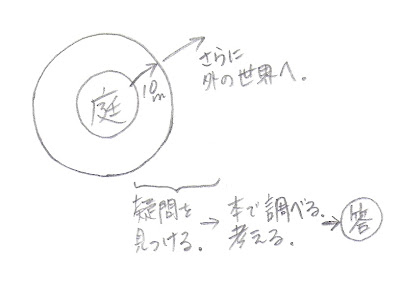 庭
10m
さらに
外の世界へ。
疑問を
見つける。
→
本で調べる。
考える。
→
答